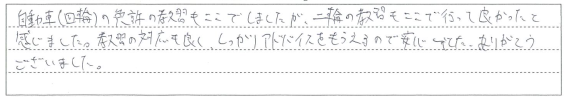 自動車(四輪)の免許の教習もここでしましたが、二輪の教習もここで行って良かったと
感じました。教習の対応も良く、しっかりアドバイスをもらえるので安心してた。ありがとう
ございました。